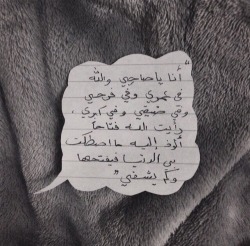 "أنا يا صاحبي والله
في عمري وفي فرحي
وفي ضيقي وفي كدري،
رأيت الله فتاحاً
ألوذ إليه ما اصطكت
بي الدنيا فيفتحها
وكم يشفي"